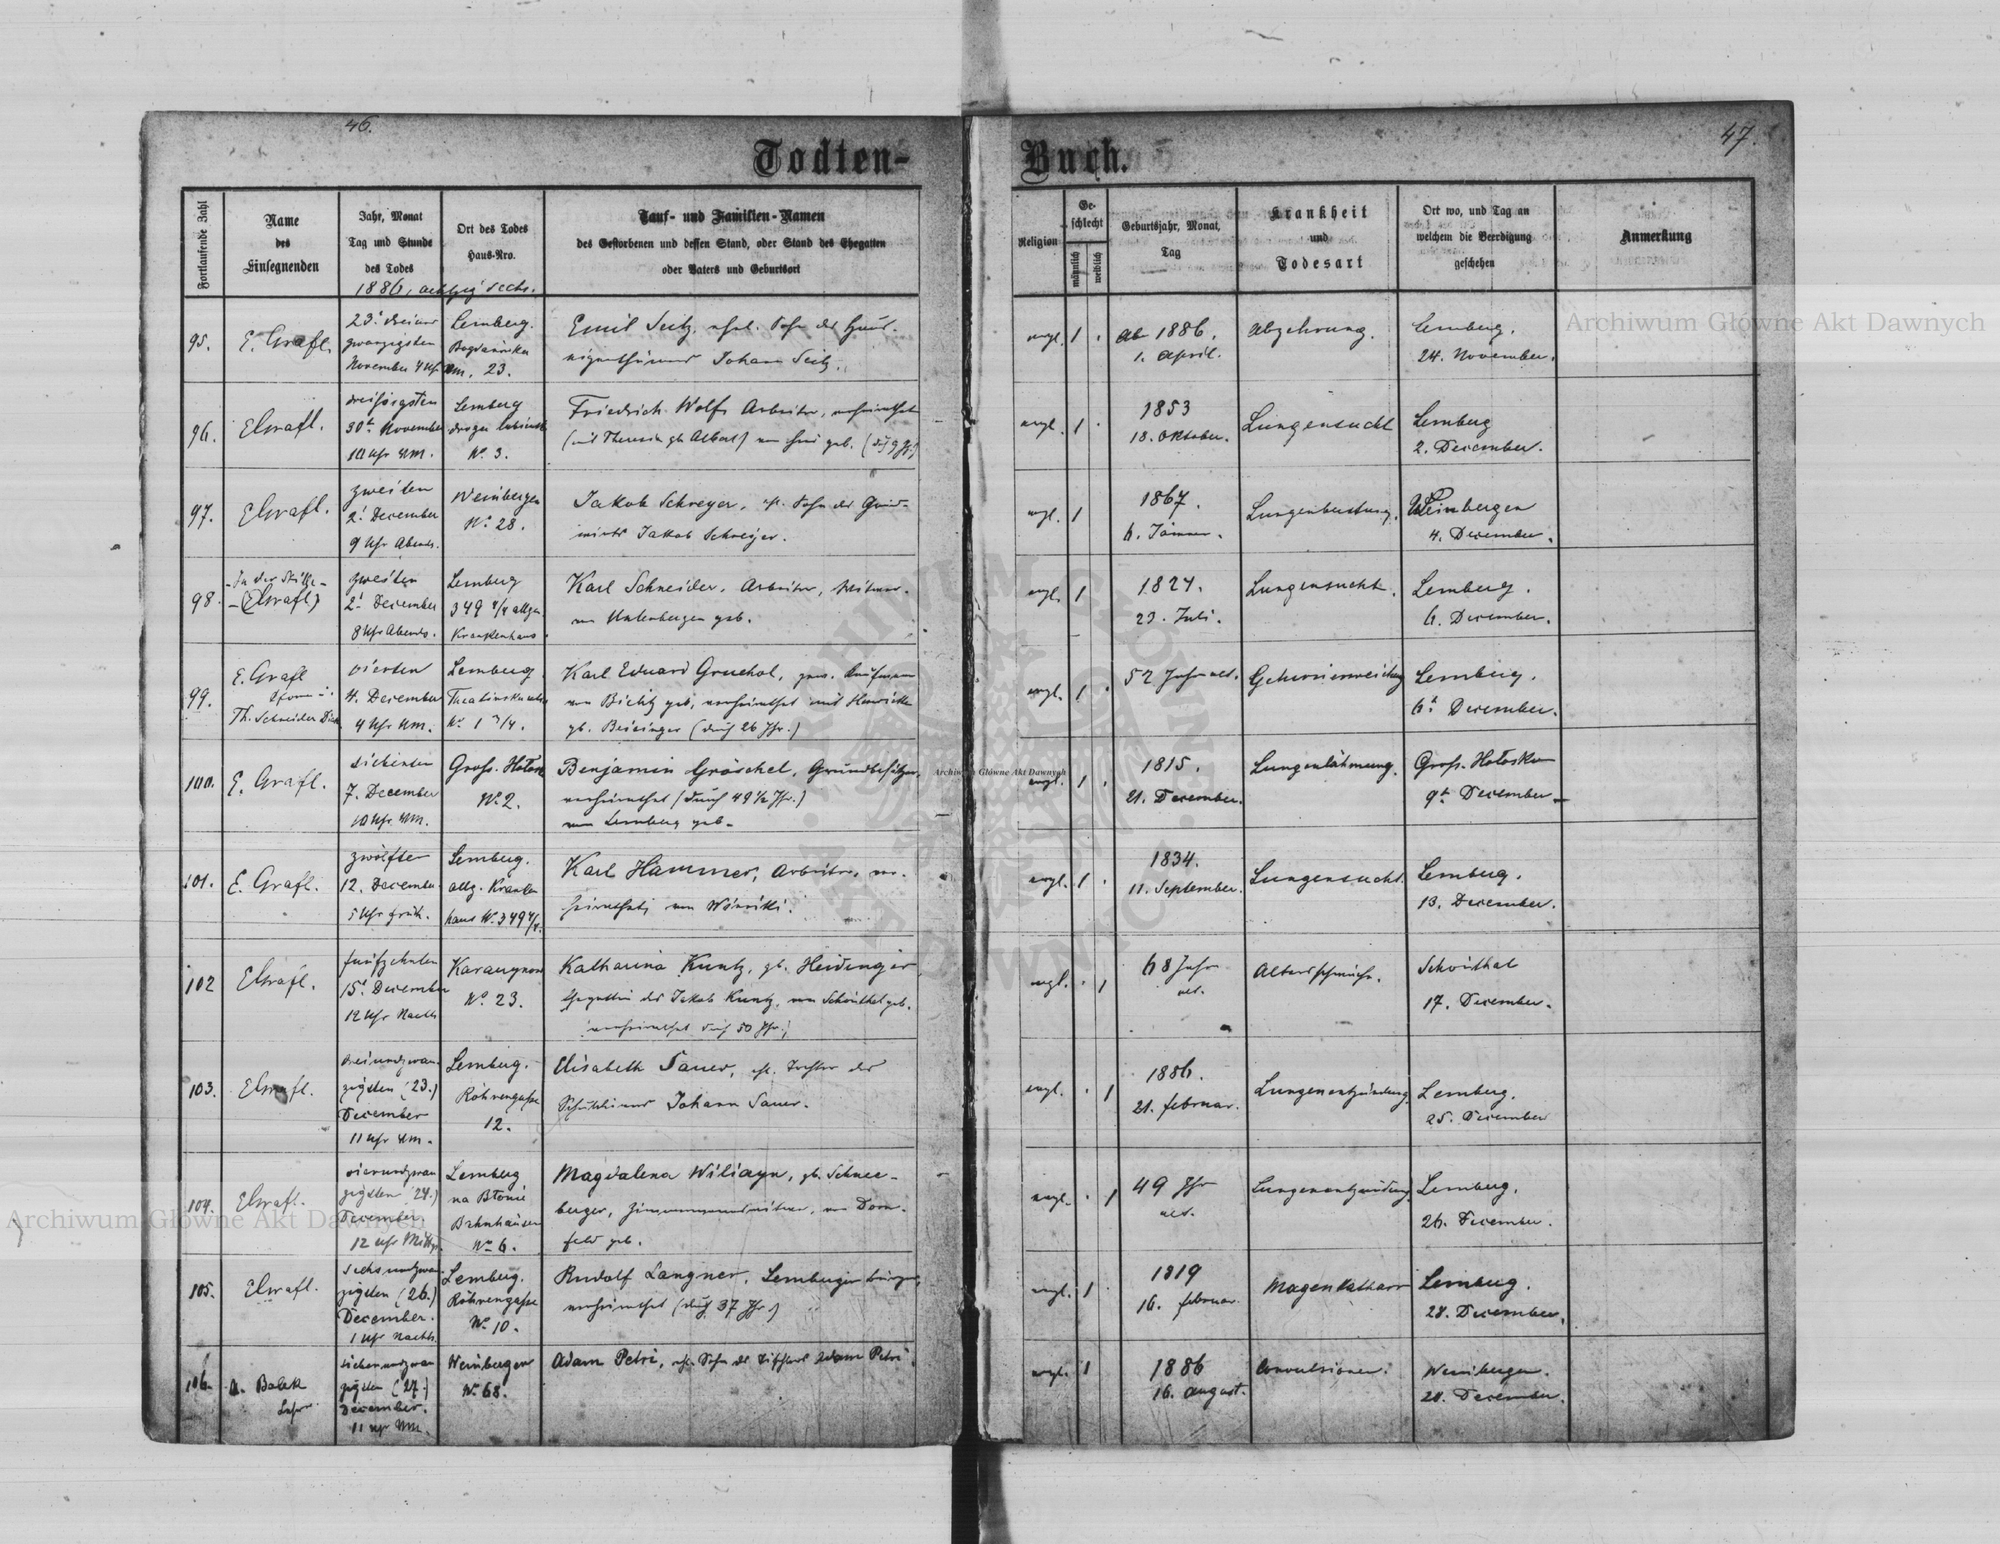 46.
47.
Todten-
Buch.
Fortlaufende Zahl
Name
des
Einsegnenden
Jahr, Monat
Tag und Stunde
des Todes
1886, achtzig sechs.
Ort des Todes
Haus-Nro.
Tauf- und Familien-Namen
des Gestorbenen und dessen Stand, oder Stand des Ehegatten
oder Vaters und Geburtsort
Religion
Ge-
schlecht
männlich
weiblich
Geburtsjahr, Monat,
Tag
Krankheit
und
Todesart
Ort wo, und Tag an
welchem die Beerdigung
geschehen
Anmerkung
95.
E. Grafl.
23. dreiund
zwanzigsten
November 4 Uhr Nm.
Lemberg.
23.
Emil Seitz, ehel. Sohn des Haus-
eigenthümers Johann Seitz.
evgl. 1
1886.
1. April.
Abzehrung.
Lemberg.
24. November.
96.
EGrafl.
dreißigsten
30t November
10 Uhr Nm.
Lemberg
N. 3.
Friedrich Wolf, Arbeiter, verheirathet
(mit Theresia gb Albert)
evgl. 1
1853
18. Oktober.
Lungensucht
Lemberg
2. December.
97.
EGrafl.
zweiten
2. December
9 Uhr Abends.
Weinbergen
N. 28.
Jakob Schreyer, eh. Sohn des Grund-
wirts Jakob Schreyer.
evgl. 1
1867.
6. Jänner.
Weinbergen
4. December.
98.
-In der Stille-
-(EGrafl)
zweiten
2. December
8 Uhr Abends.
Lemberg
349 4/4 allgm.
Krankenhaus.
Karl Schneider, Arbeiter, Witwer.
von Unterbergen geb.
evgl. 1
1827.
23. Juli.
Lungensucht.
Lemberg.
6. December.
99.
E. Grafl
Th. Schneider
vierten
4. December
4 Uhr Nm.
Lemberg
N. 1
Karl Eduard Gruchol, gew. Kaufmann
von Bielitz geb, verheirathet mit Henriette
gb. (durch 26 Jhr.)
evgl. 1
52 Jahr alt.
Gehirnerweichung
Lemberg.
6t December.
100.
E. Grafl.
siebenten
7. December
10 Uhr Nm.
Gross. Hołosk
N. 2.
Benjamin Gröschel, Grundbesitzer,
verheirathet (durch 49 ½ Jhr.)
von Lemberg geb.
evgl. 1
1815.
21. December.
Lungenlähmung.
Gross. Hołosko
9t December
101.
E. Grafl.
zwölften
12. December
5 Uhr früh.
Lemberg.
allg. Kranken
haus N. 349 4/4.
Karl Hammer, Arbeiter, ver-
heirathet, von
evgl. 1
1834.
11. September.
Lungensucht.
Lemberg.
13. December.
102
EGrafl.
fünfzehnten
15. December
12 Uhr Nachts
N. 23.
Katharina Kuntz, gb. Heidinger
Ehegattin des Jakob Kuntz, von Schönthal geb.
verheirathet durch 50 Jhr.
evgl. 1
68 Jahr
alt.
Altersschwäche.
Schönthal
17. December.
103.
EGrafl.
dreiundzwan-
zigsten (23.)
December
11 Uhr Nm.
Lemberg.
Röhrengasse
12.
Elisabeth Sauer, eh. Tochter des
Johann Sauer.
evgl. 1
1886.
21. Februar.
Lungenentzündung.
Lemberg.
25. December
104.
EGrafl.
vierundzwan
zigsten (24.)
December
12 Uhr Mittgs.
Lemberg
na Błonie
Bahnhäuser
N. 6.
Magdalena Wiliayn, gb. Schnee-
berger, Zimmermannswitwe, von Dorn-
feld geb.
evgl. 1
49 Jhr
alt.
Lungenentzündung
Lemberg.
26. December.
105.
EGrafl.
sechsundzwan
zigsten (26.)
December.
1 Uhr Nachts.
Lemberg.
Röhrengasse
N. 10.
Rudolf Langner, Lemberger Bürger,
verheirathet (durch 37 Jhr.)
evgl. 1
1819
16. Februar.
Magenkatharr
Lemberg.
28. December.
106.
A. Bolek
Lehrer.
siebenundzwan
zigsten (27.)
December.
11 Uhr Nm.
Weinbergen
N. 68.
Adam Petri, eh. Sohn des Tischlers Adam Petri.
evgl. 1
1886
16. August.
Convulsionen.
Weinbergen.
28. December.
Archiwum Główne Akt Dawnych
Archiwum Główne Akt Dawnych
Archiwum Główne Akt Dawnych
ARCHIWUM GŁÓWNE
AKT DAWNYCH